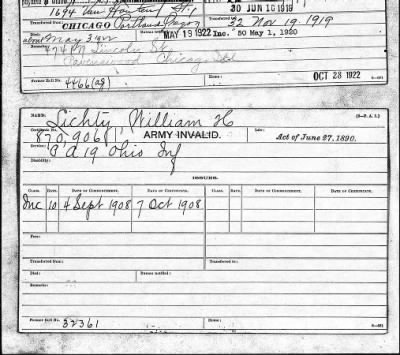 30 JUN 16 1919
1694 Van Houten St
Transferred from CHICAGO Portland Oregon
32 Nov 19-1919
Died: MAY 19 1922 Inc. 50 May 1, 1920
about May 3, 1922
4747 N Lincoln St.
Ravenswood Chicago Ill
Former Roll No. 4466 OCT 28 1922
NAME: Lichty, William H
Certificate No. 870,906 ARMY INVALID. Law: Act of June 27, 1890.
Service: D 19 Ohio Inf
Disability:
ISSUES.
CLASS. RATE. DATE OF COMMENCEMENT. DATE OF CERTIFICATE. CLASS. RATE. DATE OF COMMENCEMENT. DATE OF CERTIFICATE.
Inc 10 4 Sept 1908 7 Oct 1908
Fees:
Transferred from: To:
Died: Bureau notified:
Remarks:
Former Roll No. 32361 Home: